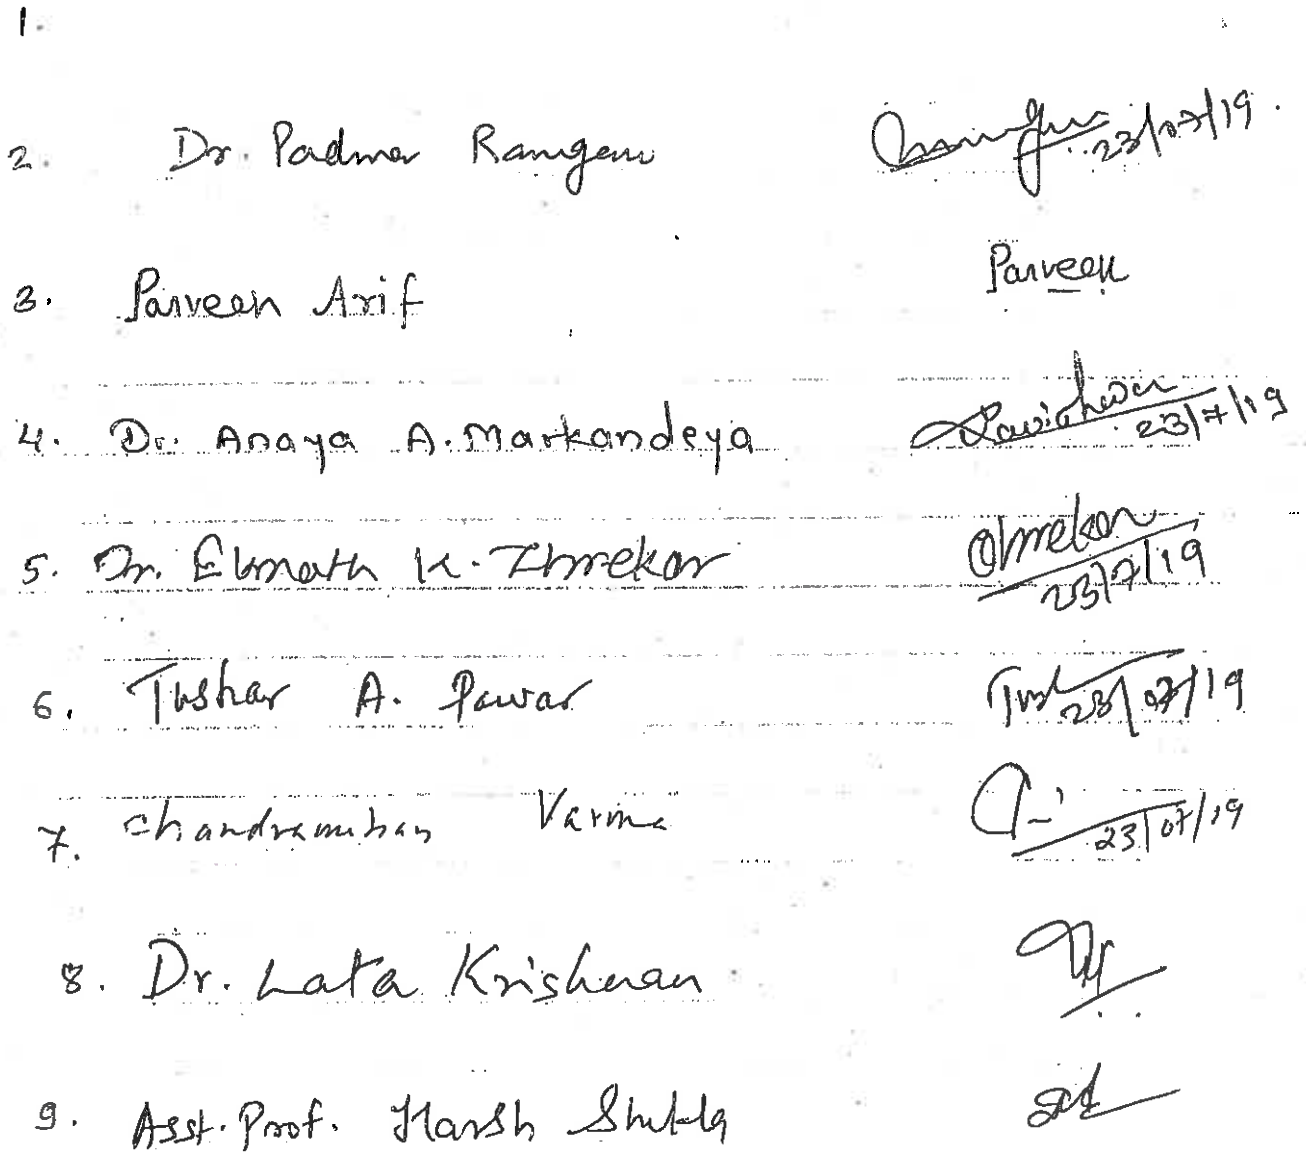 1.
2. Dr. Padma Rangan 23/07/19.
3. Parveen Arif Parveen
4. Dr. Anaya A. Markandeya 23/7/19
5. Dr. Eknath K. 23/7/19
6. Tushar A. Pawar 23/07/19
7. Chandramohan Varma 23/07/19
8. Dr. Lata Krishnan
9. Asst. Prof. Harsh Shukla